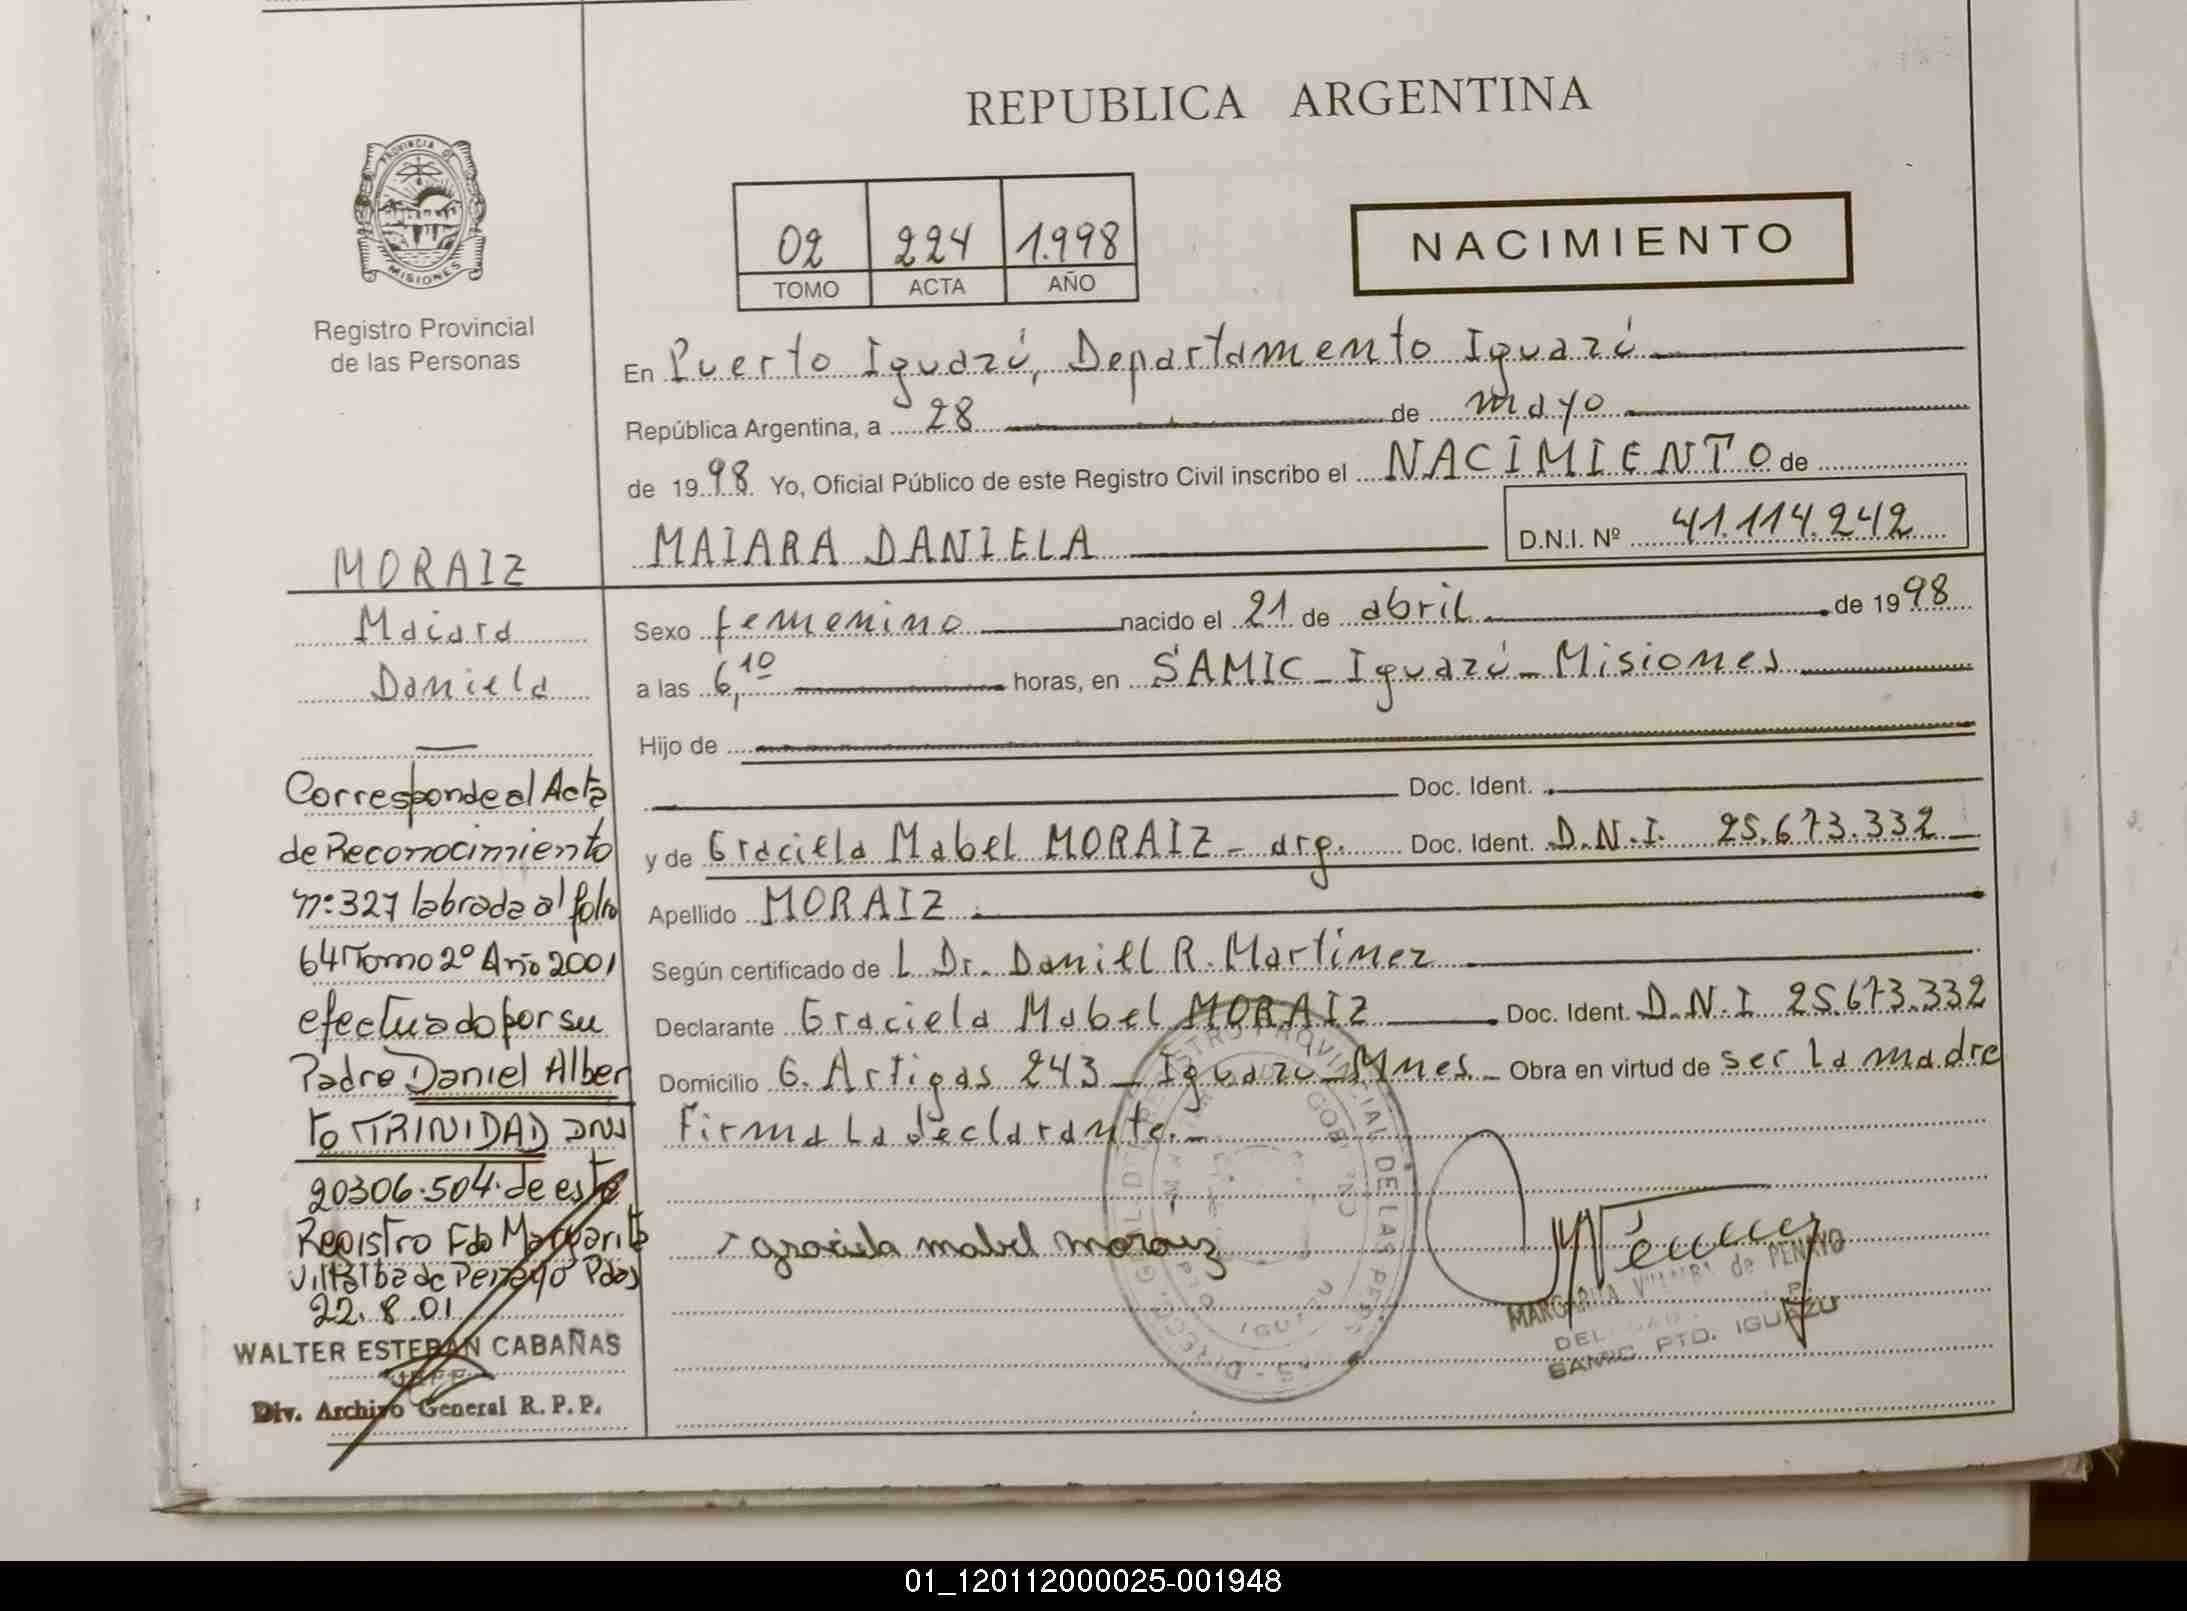 REPUBLICA ARGENTINA
PROVINCIA DE
MISIONES
Registro Provincial
de las Personas
02 224 1.998
TOMO ACTA AÑO
NACIMIENTO
En Puerto Iguazú, Departamento Iguazú
República Argentina, a 28 de mayo
de 1998 Yo, Oficial Público de este Registro Civil inscribo el NACIMIENTO de
MAIARA DANIELA D.N.I. Nº 41.114.242
Sexo femenino nacido el 21 de abril de 1998
a las 6,10 horas, en SAMIC - Iguazú - Misiones
Hijo de
Doc. Ident.
y de Graciela Mabel MORAIZ - arg. Doc. Ident. D.N.I. 25.673.332
Apellido MORAIZ
Según certificado de L Dr. Daniel R. Martinez
Declarante Graciela Mabel MORAIZ Doc. Ident. D.N.I 25.673.332
Domicilio G. Artigas 243 - Iguazú - Mnes. - Obra en virtud de ser la madre
Firma La declarante. -
graciela mabel moraiz
MARGARITA VILLALBA de PENAYO
SAMIC PTO. IGUAZU
MORAIZ
Maiara
Daniela
Corresponde al Acta
de Reconocimiento
nº 327 labrada al folio
64 Tomo 2º Año 2001
efectuado por su
Padre Daniel Alber
to TRINIDAD DNI
20306.504. de este
Registro Fdo Margarita
Villalba de Penayo Pdas
22.8.01
WALTER ESTEBAN CABAÑAS
Div. Archivo General R. P. P.
01_120112000025-001948